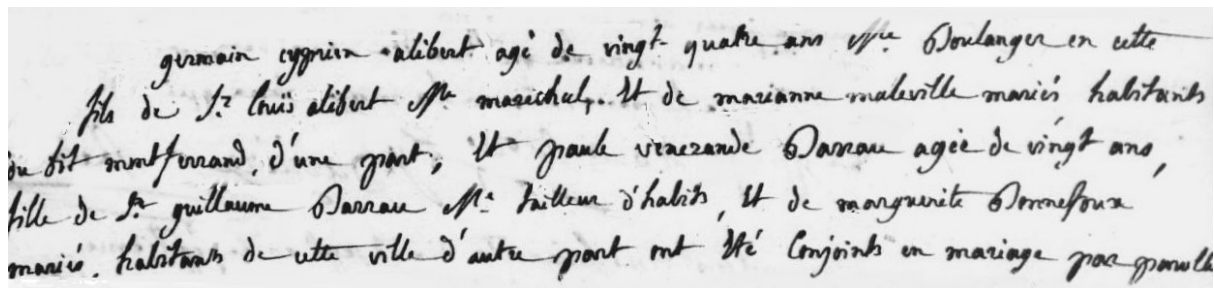 germain cyprien alibert agé de vingt quatre ans Mre Boulanger en cette
fils de Sr Louïs alibert Mre marechal, Et de marianne maleville mariés habitants
du dit montferrand, d'une part, Et paule venerande Barrau agée de vingt ans,
fille de Sr guillaume Barrau Me tailleur d'habits, Et de marguerite Bonnefoux
mariés, habitants de cette ville d'autre part ont Eté Conjoints en mariage par parolle